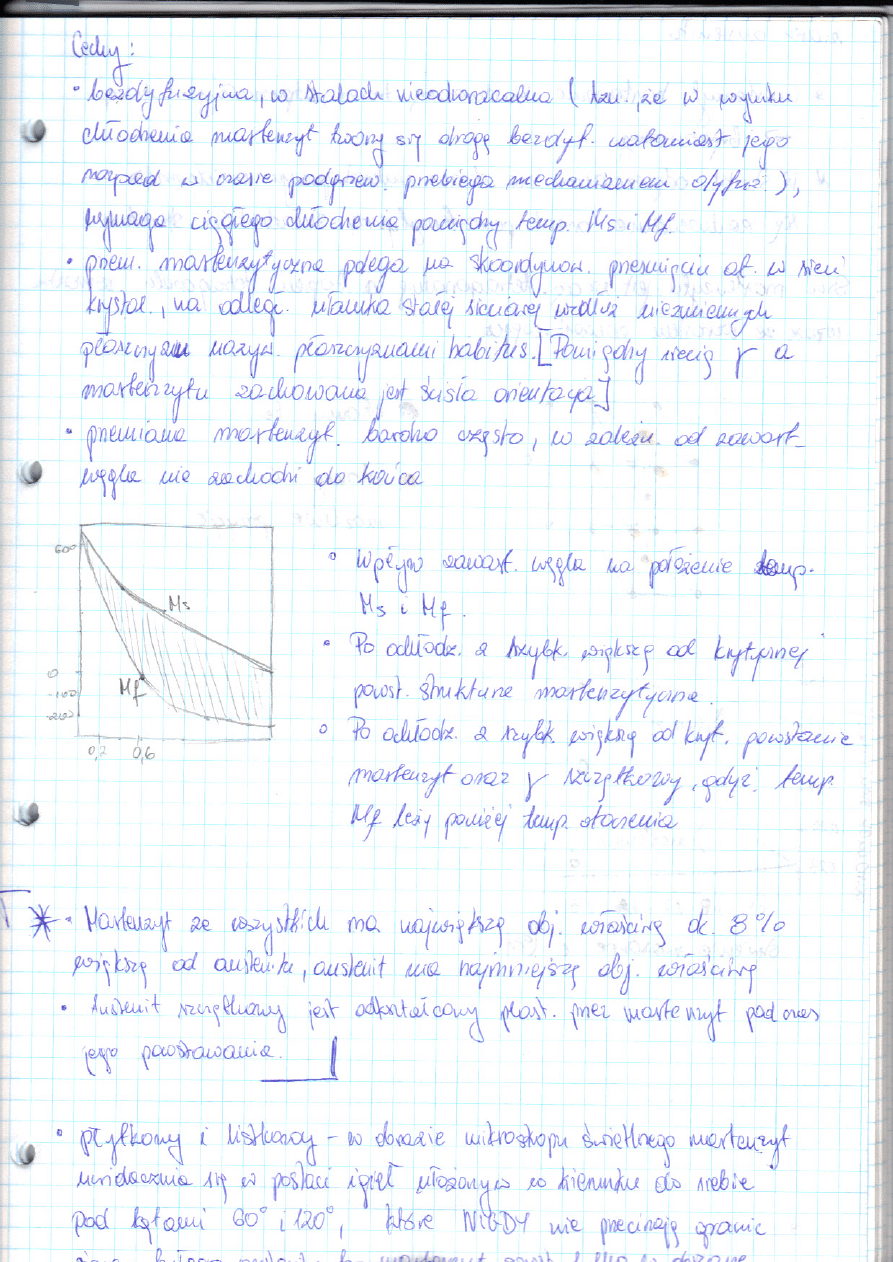 Cechy:
• bezdyfuzyjna, w stalach nieodwracalna (tzn. że w wyniku
chłodzenia martenzyt tworzy się drogą bezdyf. natomiast jego
rozpad w czasie podgrzew. przebiega mechanizmem dyfuz.),
wymaga ciągłego chłodzenia pomiędzy temp. Ms i Mf.
• przem. martenzytyczna polega na skoordynow. przesunięciu at. w sieci
krystal., na odległ. ułamka stałej sieciowej wzdłuż niezmiennych
płaszczyzn nazyw. płaszczyznami habitus. [Pomiędzy siecią γ a
martenzytu zachowana jest ścisła orientacja]
• przemiana martenzyt. bardzo często, w zależn. od zawart.
węgla nie zachodzi do końca
600
Ms
0
-100
Mf
-200
0,2 0,6
° Wpływ zawart. węgla na położenie temp.
Ms i Mf.
° Po ochłodz. z szybk. większą od krytycznej
powst. struktura martenzytyczna.
° Po ochłodz. z szybk. większą od kryt. powstanie
martenzyt oraz γ szczątkowy, gdyż temp.
Mf leży poniżej temp. otoczenia
* • Martenzyt ze wszystkich ma największą obj. właściwą ok. 8%
większą od austenitu, austenit ma najmniejszą obj. właściwą
• Austenit szczątkowy jest odkształcony plast. przez martenzyt podczas
jego powstawania.
• płytkowy i listkowy - w obrazie mikroskopu świetlnego martenzyt
uwidacznia się w postaci igieł ułożonych w kierunku do siebie
pod kątami 60° i 120°, które NIGDY nie przecinają granic